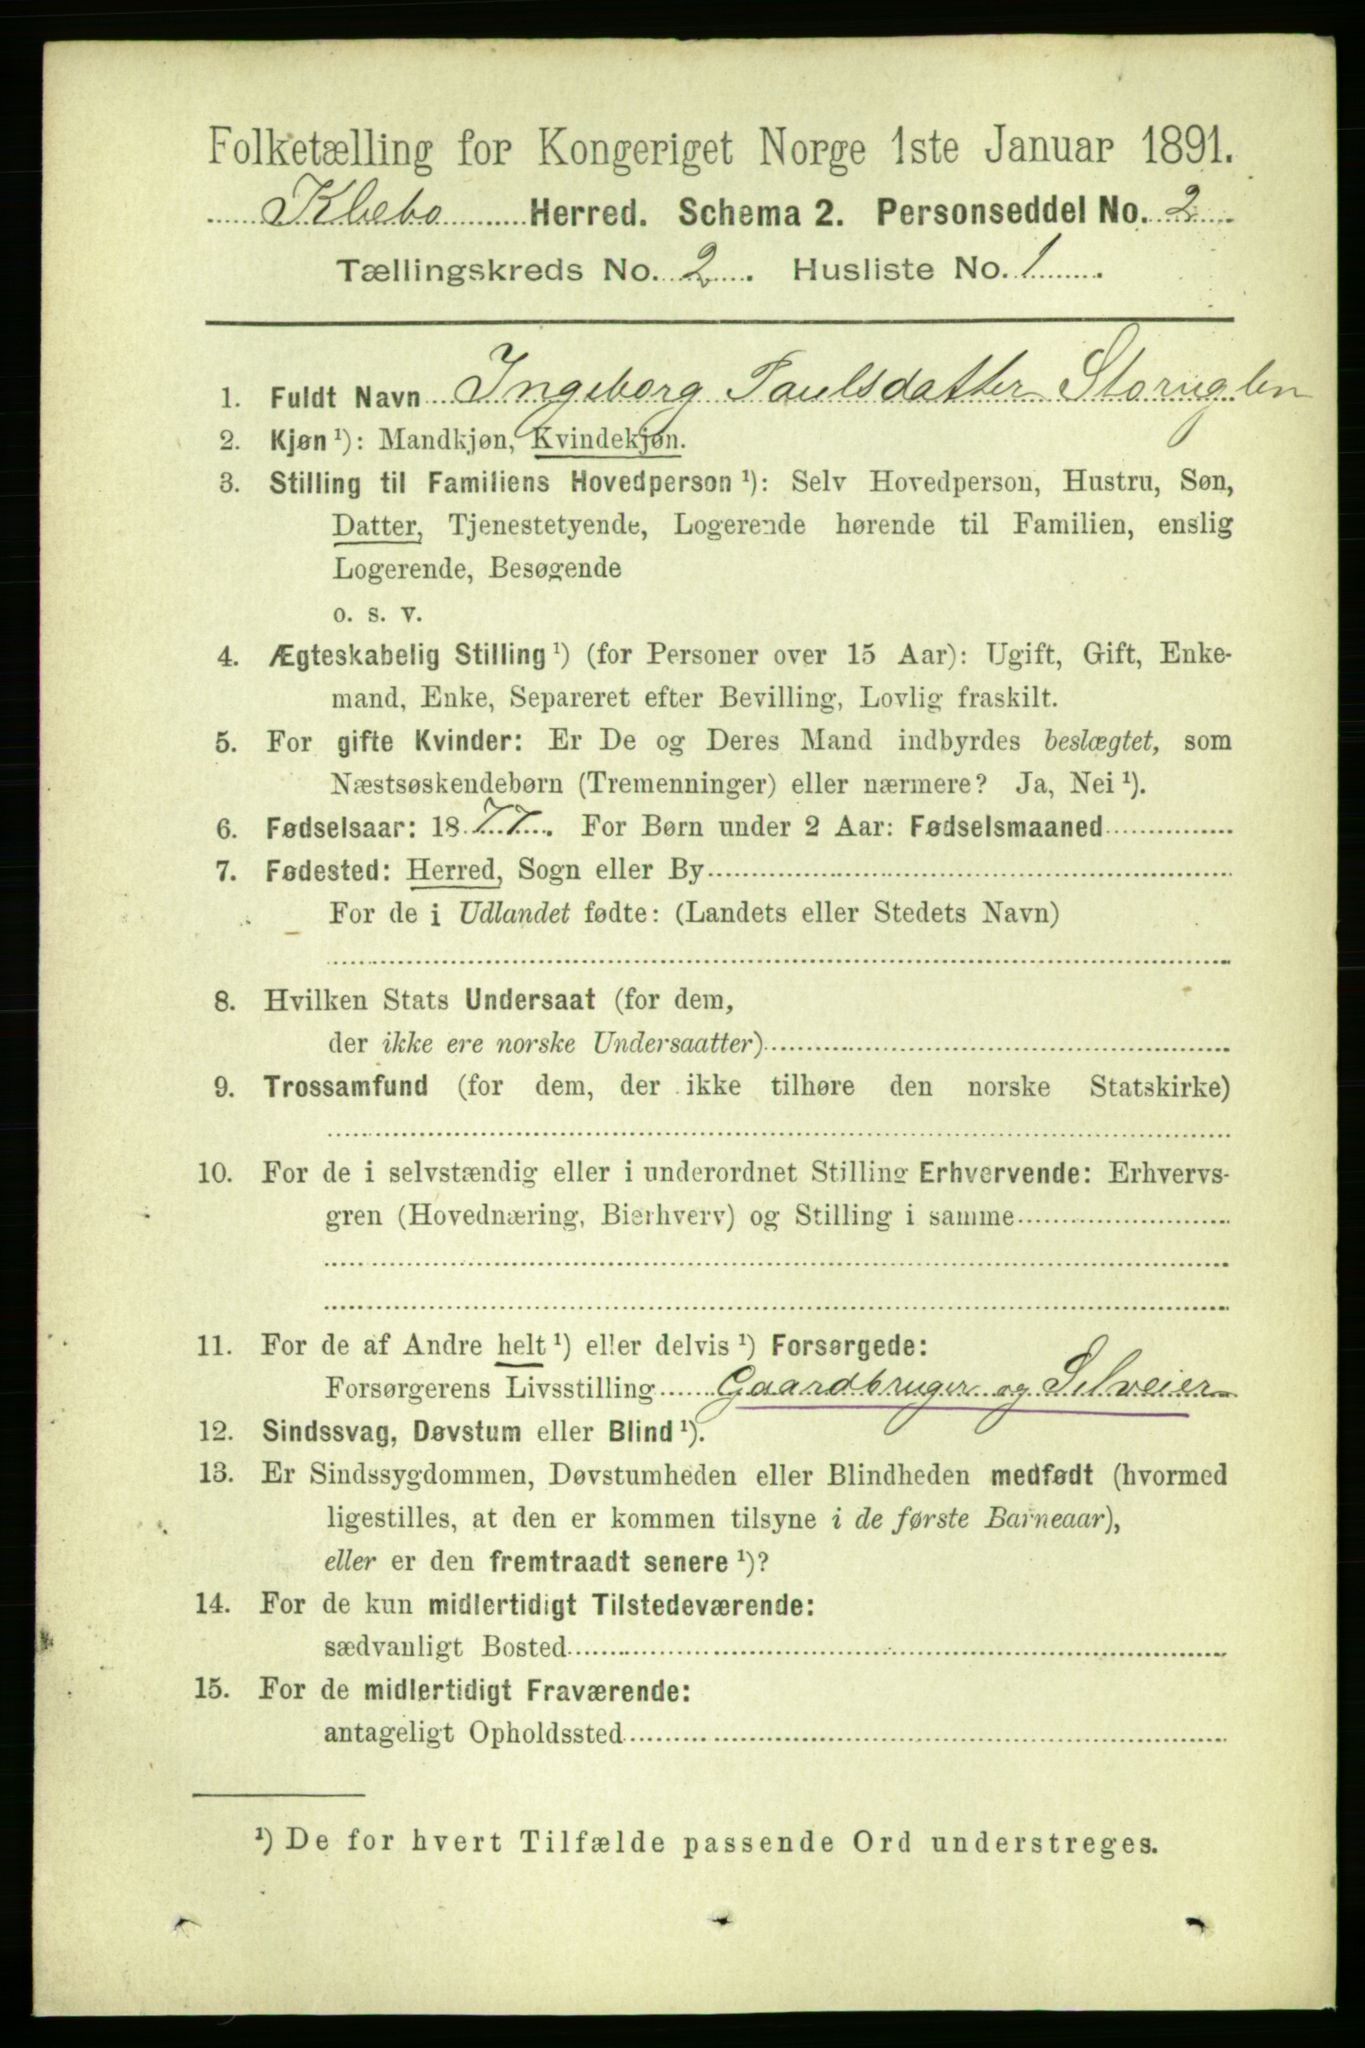 Folketælling for Kongeriget Norge 1ste Januar 1891.
Klæbo Herred. Schema 2. Personseddel No. 2.
Tællingskreds No. 2. Husliste No. 1.
1. Fuldt Navn Ingeborg Paulsdatter Storuglen
2. Kjøn ¹): Mandkjøn, Kvindekjøn.
3. Stilling til Familiens Hovedperson ¹): Selv Hovedperson, Hustru, Søn,
Datter, Tjenestetyende, Logerende hørende til Familien, enslig
Logerende, Besøgende
o. s. v.
4. Ægteskabelig Stilling ¹) (for Personer over 15 Aar): Ugift, Gift, Enke-
mand, Enke, Separeret efter Bevilling, Lovlig fraskilt.
5. For gifte Kvinder: Er De og Deres Mand indbyrdes beslægtet, som
Næstsøskendebørn (Tremenninger) eller nærmere? Ja, Nei ¹).
6. Fødselsaar: 1877. For Børn under 2 Aar: Fødselsmaaned
7. Fødested: Herred, Sogn eller By
For de i Udlandet fødte: (Landets eller Stedets Navn)
8. Hvilken Stats Undersaat (for dem,
der ikke ere norske Undersaatter)
9. Trossamfund (for dem, der ikke tilhøre den norske Statskirke)
10. For de i selvstændig eller i underordnet Stilling Erhvervende: Erhvervs-
gren (Hovednæring, Bierhverv) og Stilling i samme
11. For de af Andre helt ¹) eller delvis ¹) Forsørgede:
Forsørgerens Livsstilling Gaardbruger og Selveier
12. Sindssvag, Døvstum eller Blind ¹).
13. Er Sindssygdommen, Døvstumheden eller Blindheden medfødt (hvormed
ligestilles, at den er kommen tilsyne i de første Barneaar),
eller er den fremtraadt senere ¹)?
14. For de kun midlertidigt Tilstedeværende:
sædvanligt Bosted
15. For de midlertidigt Fraværende:
antageligt Opholdssted
¹) De for hvert Tilfælde passende Ord understreges.